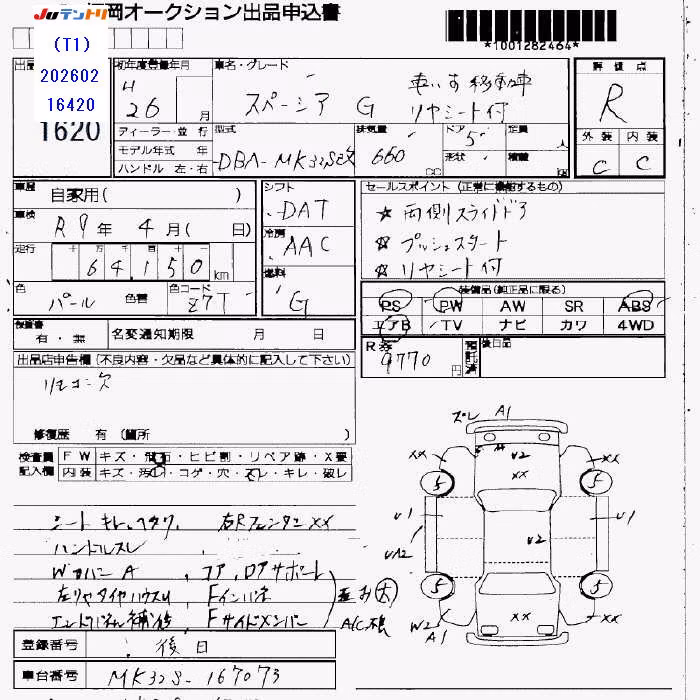 JUテントリ
福岡オークション出品申込書
(T1)
202602
16420
1620
*1001282464*
初年度登録年月
H 26 年 月
車名・グレード
スペーシア G
車いす移動車
リヤシート付
評価点
R
外装 内装
C C
ディーラー・並行
モデル年式 年
ハンドル 左・右
型式
DBA-MK32S改
排気量
660 CC
ドア
5
形状
定員
人
積載
車歴
自家用( )
車検
R9年 4月( 日)
走行
64,150 km
色
パール
色替
色コード
Z7T
シフト
DAT
冷房
AAC
燃料
G
セールスポイント (正常に機能するもの)
☆ 両側スライドドア
☆ プッシュスタート
☆ リヤシート付
装備品(純正品に限る)
PS PW AW SR ABS
エアB TV ナビ カワ 4WD
保証書
有・無
名変通知期限 月 日
R券
9770 円
預託済
後日品
出品店申告欄 (不良内容・欠品など具体的に記入して下さい)
リモコン欠
修復歴 有 (箇所 )
検査員 FW キズ・飛石・ヒビ割・リペア跡・X要
記入欄 内装 キズ・汚れ・コゲ・穴・スレ・キレ・破レ
シート キレ、ヘタリ、右Rフェンダー XX
ハンドルスレ
Wカバー A、コア、ロアサポート
左リヤタイヤハウス凹、Fインパネ
エンドパネル補修、Fサイドメンバー
A/C不良
ズレ A1
XX XX
U2
5 5
U1 U1
UA2 U2
5 5
XX
W2 XX
A1
登録番号 後日
車台番号 MK32S-167073